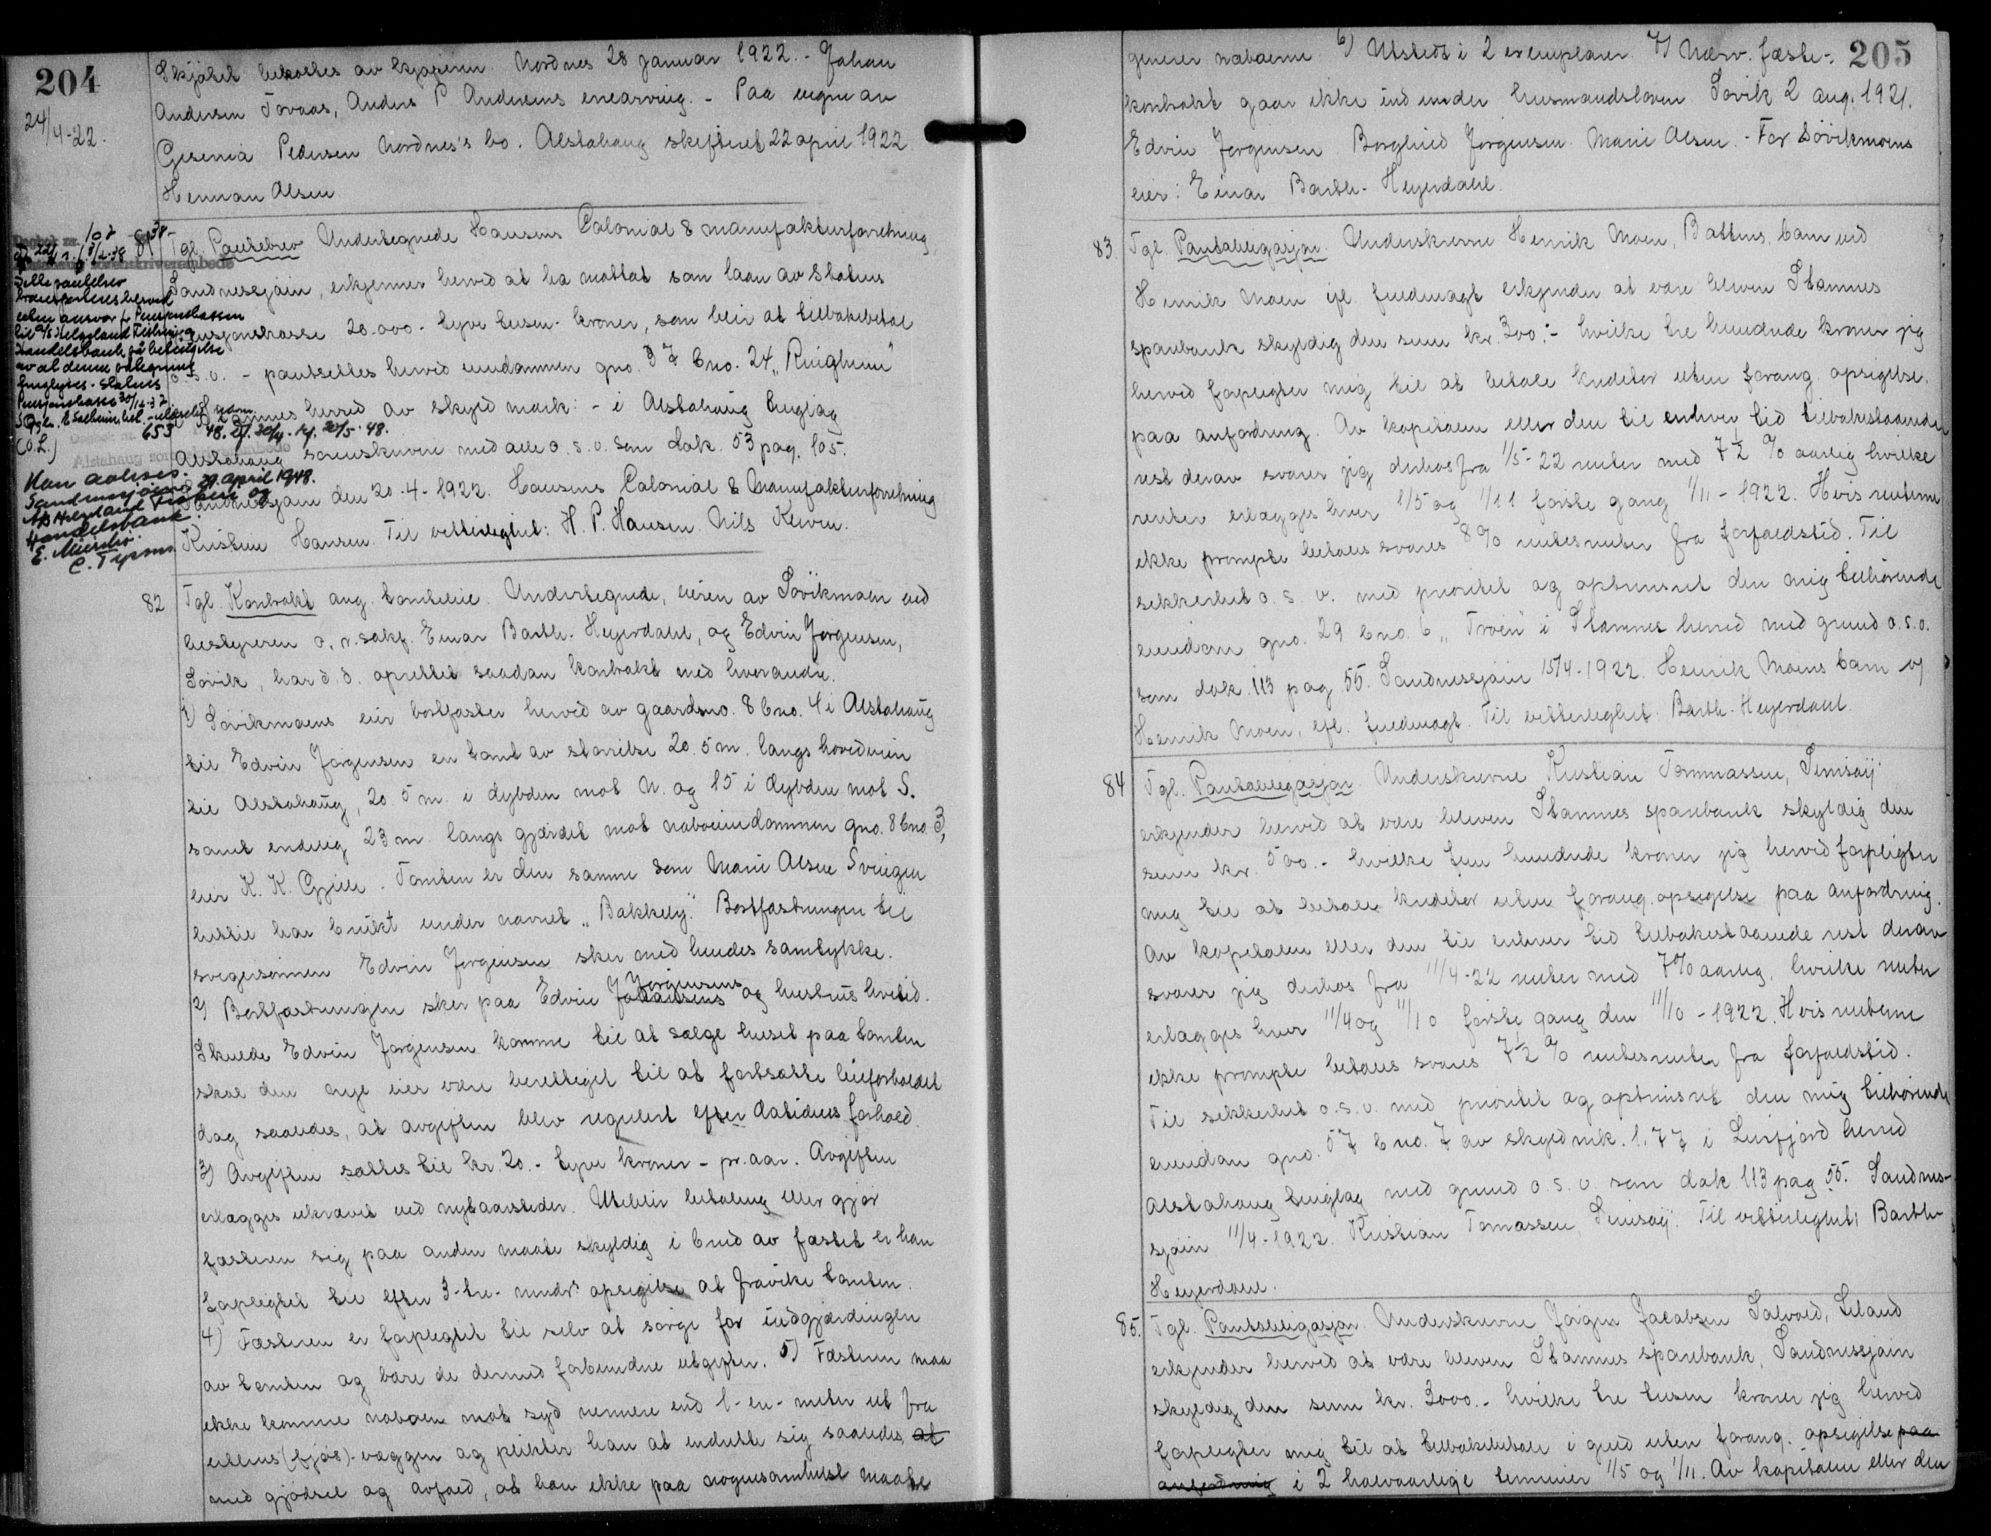 204
24/4-22.
Skjøtet bekostes av kjøperen. Nordnes 28 januar 1922. - Johan
Andersen Tovaas, Anders P. Andersens enearving. - Paa vegne av
Gesenia Pedersen Nordnes's bo. Alstahaug skifteret 22 april 1922.
Herman Olsen
81 Tgl. Pantebrev Undertegnede Hansens Colonial & manufakturforretning
Sandnessjøen, erkjenner herved at ha mottat som laan av Statens
Pensjonskasse 20.000 - tyve tusen - kroner, som blir at tilbakebetale
o.s.v. - pantsettes herved eiendommen gno. 37 bno. 24 "Ringheim"
i Stamnes herred av skyld mark: - i Alstahaug tinglag
Alstahaug sorenskriveri med alle o.s.v. som dok. 53 pag. 105.
Sandnessjøen den 20-4-1922. Hansens Colonial & Manufakturforretning
Kristen Hansen. Til vitterlighet: H. P. Hansen. Nils
Dette pantebrev
transporteres herved
uten ansvar for Pensjonskassen
til A/S Helgeland Fiskeri og
Handelsbank på betingelse
av at denne påtegning
tinglyses. Statens
Pensjonskasse 30/12-37
653 48. 30/4. 20/5-48.
(O.L.)
Kan avlyses.
Sandnessjøen 29 april 1948.
A/S Helgeland Fiskeri og
Handelsbank.
82 Tgl. Kontrakt ang. tomteleie. Undertegnede, eieren av Søvikmoen ved
bestyreren o.r.sakf. Einar Barth-Heyerdahl, og Edvin Jørgensen,
Søvik, har d.d. oprettet saadan kontrakt med hverandre.
1) Søvikmoens eier bortfæster herved av gaardsno. 8 bno. 4 i Alstahaug
til Edvin Jørgensen en tomt av størrelse 20.5 m. langs hovedveien
til Alstahaug, 20.5 m. i dybden mot N. og 15 i dybden mot S.
samt endelig 23 m langs gjærdet mot naboeiendommen gno. 8 bno. 3,
eier K. K. Gjille. Tomten er den samme som Marie Olsen Svingen
hittil har brukt under navnet "Bakkely". Bortfæstningen til
svigersønnen Edvin Jørgensen sker med hendes samtykke.
2) Bortfæstningen sker paa Edvin Johansens Jørgensens og hustrus livstid.
Skulde Edvin Jørgensen komme til at sælge huset paa tomten
skal den nye eier være berettiget til at fortsætte leieforholdet
dog saaledes, at avgiften blev regulert efter datidens forhold.
3) Avgiften sættes til kr. 20. - tyve kroner - pr. aar. Avgiften
erlægges ukrævet ved nytaarstider. Uteblir betaling eller gjør
fæsteren sig paa anden maate skyldig i brud av fæstet er han
forpligtet til efter 3-tre- mndrs opsigelse at fravike tomten.
4) Fæsteren er forpligtet til selv at sørge for indgjærdingen
av tomten og bære de dermed forbundne utgifter. 5) Fæsteren maa
ikke komme naboen mot syd nærmere end 1-en-meter ut fra
uthus (fjøs)-væggen og plikter han at indrette sig saaledes at
med gjødsel og avfald, at han ikke paa nogensomhelst maate
205
generer naboerne. 6) Utstedt i 2 exemplarer. 7) Nærv. fæste-
kontrakt gaar ikke ind under husmandsloven. Søvik 2 aug. 1921.
Edvin Jørgensen. Borghild Jørgensen. Marie Olsen. - For Søvikmoens
eier: Einar Barth-Heyerdahl.
83 Tgl. Pantobligasjon. Underskrevne Henrik Moen, Botnes, barn ved
Henrik Moen ifl. fuldmagt erkjender at være bleven Stamnes
sparebank skyldig den sum kr. 300:- hvilke tre hundrede kroner jeg
herved forpligter mig til at betale kreditor uten forang. opsigelse.
paa anfordring. Av kapitalen eller den til enhver tid tilbakestaaende
rest derav svarer jeg derhos fra 1/5-22 renter med 7½ % aarlig hvilke
renter erlægges hver 1/5 og 1/11 første gang 1/11-1922. Hvis renterne
ikke prompte betales svares 8 % rentesrenter fra forfaldstid. Til
sikkerhet o.s.v. med prioritet og optrinsret den mig tilhørende
eiendom gno. 29 bno. 6 "Troen" i Stamnes herred med grund o.s.v.
som dok. 113 pag 55. Sandnessjøen 15/4-1922. Henrik Moens barn v/
Henrik Moen, efl. fuldmagt. Til vitterlighet: Barth-Heyerdahl.
84 Tgl. Pantobligasjon. Underskrevne Kristian Tommassen,
erkjender herved at være bleven Stamnes sparebank skyldig den
sum kr. 500.- hvilke fem hundrede kroner jeg herved forpligter
mig til at betale kreditor uten forang. opsigelse paa anfordring.
Av kapitalen eller den til enhver tid tilbakestaaende rest derav
svarer jeg derhos fra 11/4-22 renter med 7% aarlig, hvilke renter
erlægges hver 11/4 og 11/10 første gang den 11/10-1922. Hvis renterne
ikke prompte betales svares 7½ % rentesrenter fra forfaldstid.
Til sikkerhet o.s.v. med prioritet og optrinsret den mig tilhørende
eiendom gno. 57 bno. 7 av skyldmk. 1.77 i Leirfjord herred
Alstahaug tinglag med grund o.s.v. som dok. 113 pag 55. Sandnes-
sjøen 11/4-1922. Kristian Tomassen, Til vitterlighet: Barth-
Heyerdahl.
85. Tgl. Pantobligasjon. Underskrevne Jørgen Jacobsen Salvold, Leland
erkjender herved at være bleven Stamnes sparebank, Sandnessjøen
skyldig den sum kr. 3000.- hvilke tre tusen kroner jeg herved
forpligter mig til at tilbakebetale i guld uten forang. opsigelse paa
anfordring i 2 halvaarlige terminer 1/5 og 1/11. Av kapitalen eller den